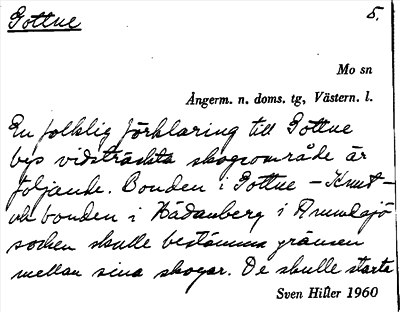 Gottne
5.
Mo sn
Ångerm. n. doms. tg, Västern. l.
En folklig förklaring till Gottne
bys vidsträckta skogsområde är
följande. Bonden i Gottne – Knut –
och bonden i Kädanberg i Anundsjö
socken skulle bestämma gränsen
mellan sina skogar. De skulle starta
Sven Hiller 1960